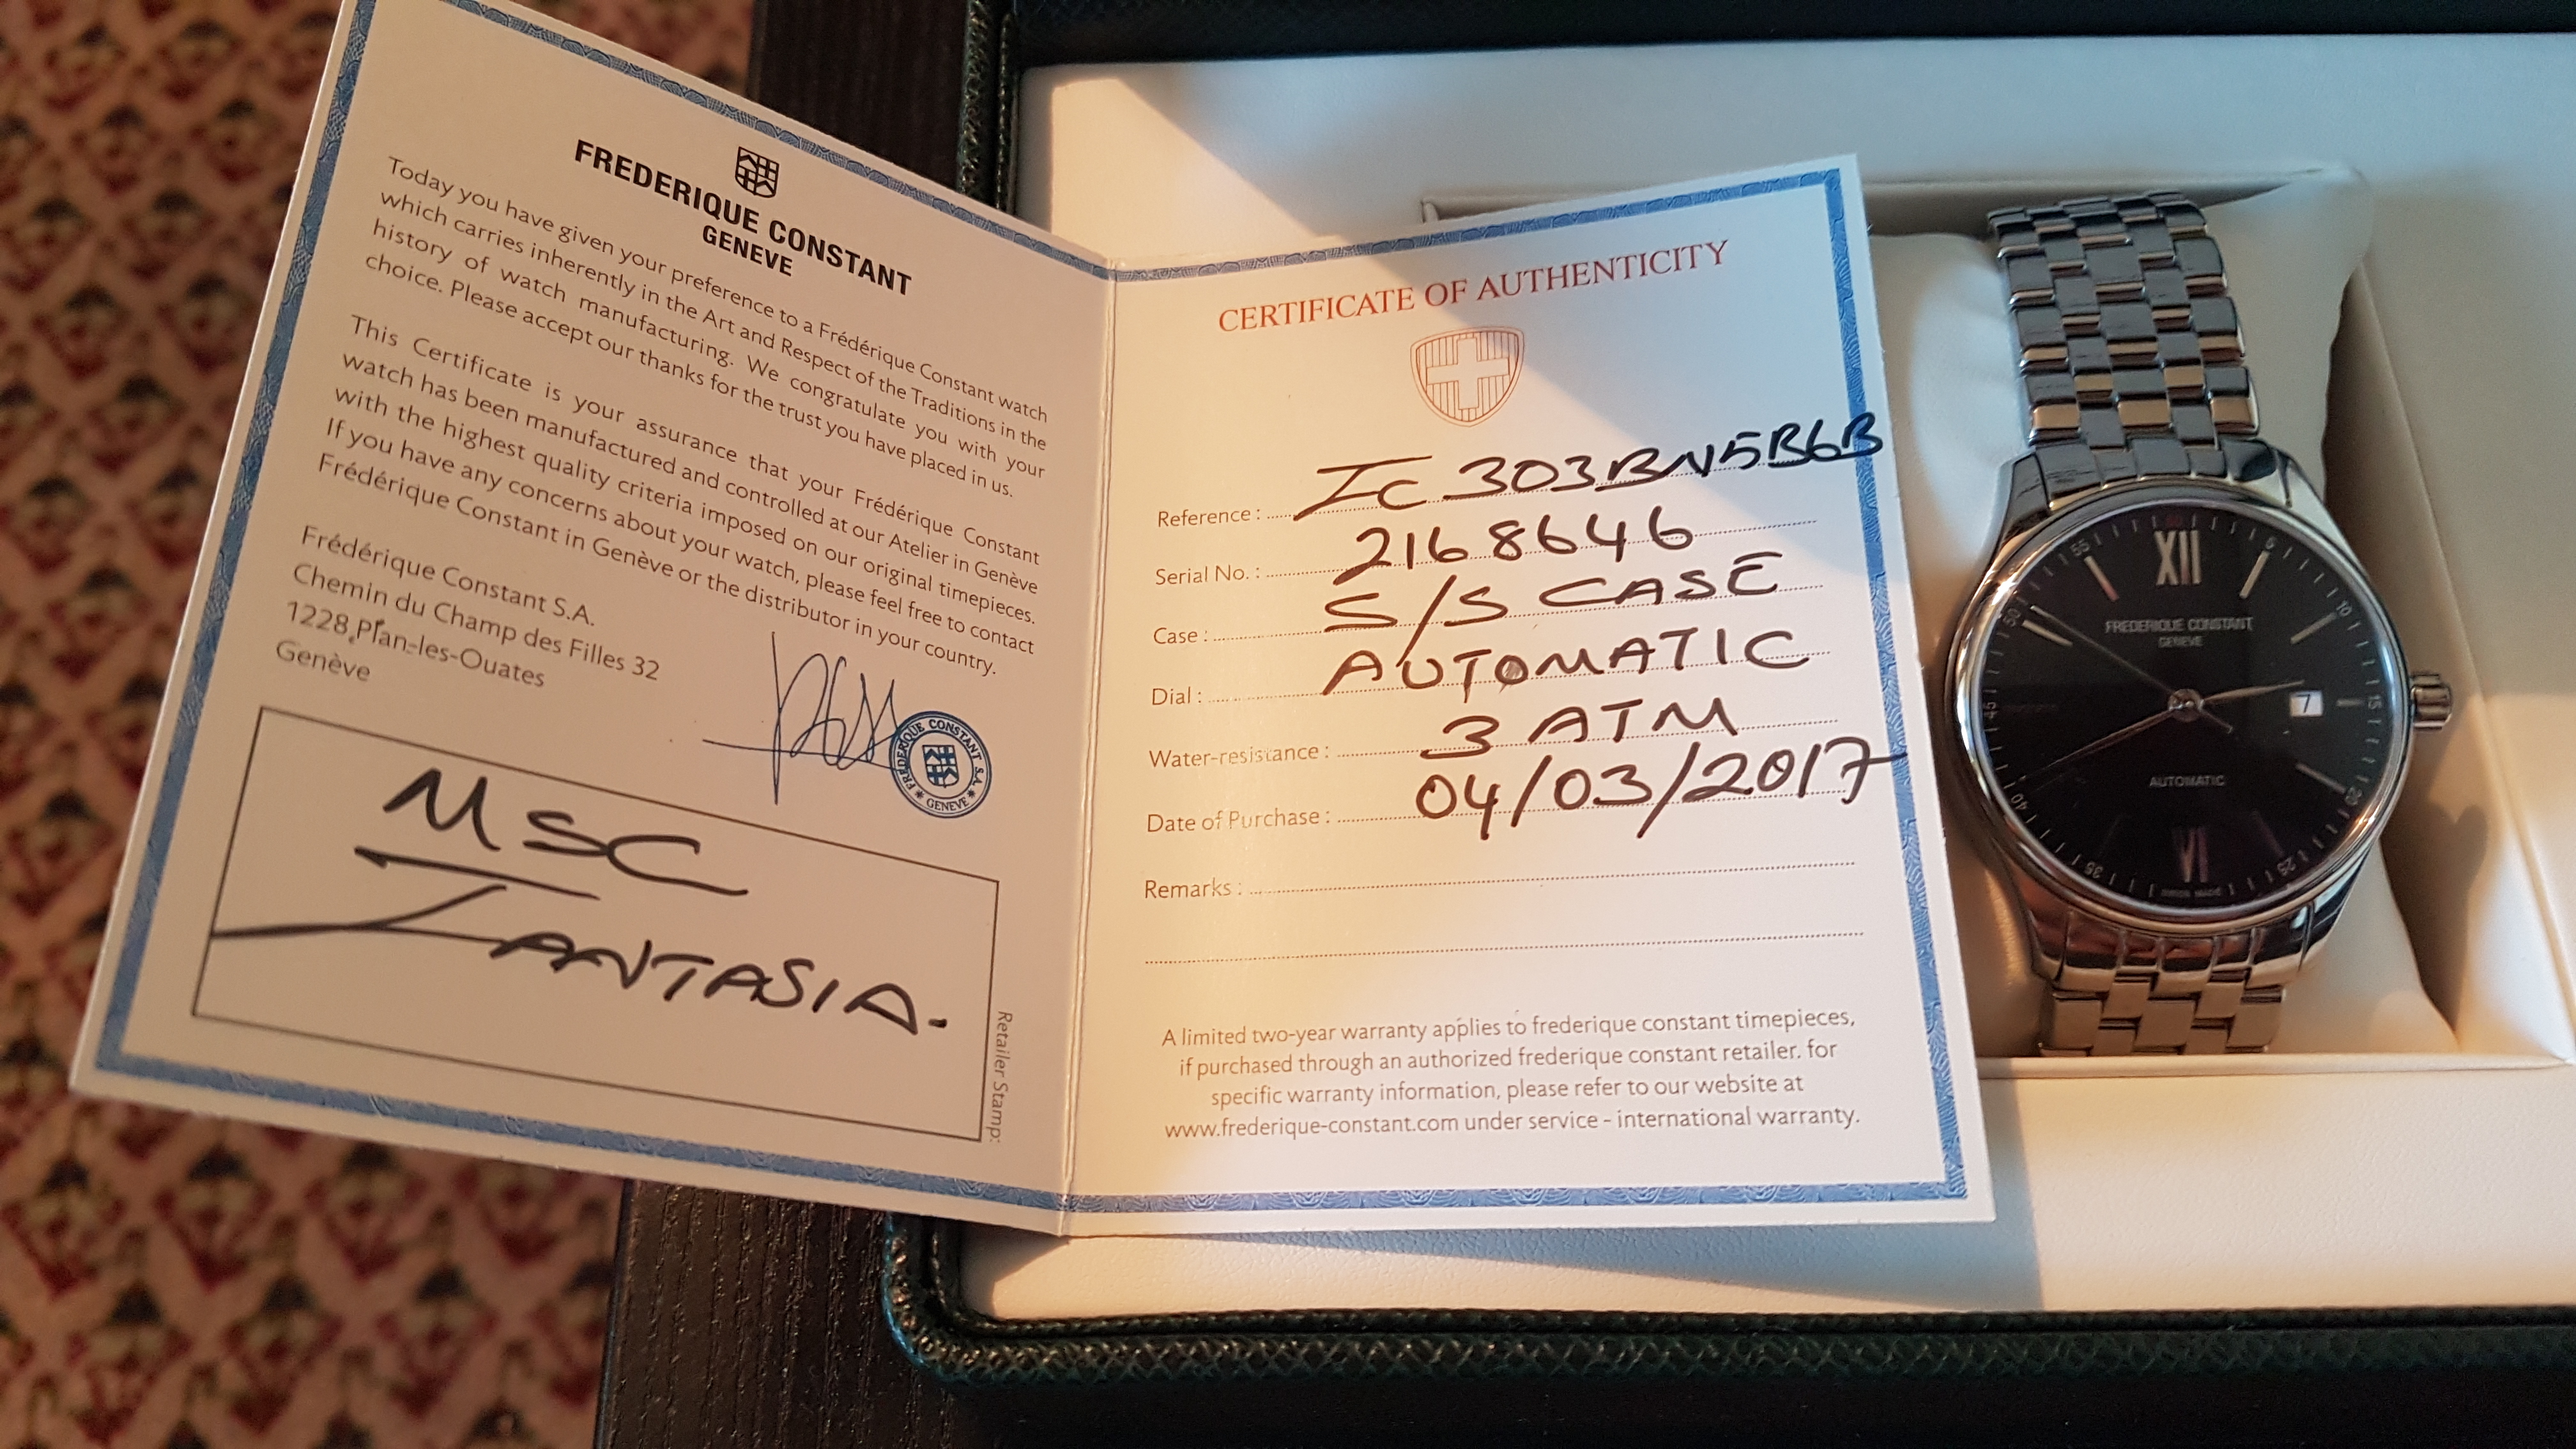 FREDERIQUE CONSTANT
GENEVE
Today you have given your preference to a Frédérique Constant watch
which carries inherently in the Art and Respect of the Traditions in the
history of watch manufacturing. We congratulate you with your
choice. Please accept our thanks for the trust you have placed in us.
This Certificate is your assurance that your Frédérique Constant
watch has been manufactured and controlled at our Atelier in Genève
with the highest quality criteria imposed on our original timepieces.
If you have any concerns about your watch, please feel free to contact
Frédérique Constant in Genève or the distributor in your country.
Frédérique Constant S.A.
Chemin du Champ des Filles 32
1228 Plan-les-Ouates
Genève
FREDERIQUE CONSTANT S.A.
GENEVE
MSC
FANTASIA.
Retailer Stamp:
CERTIFICATE OF AUTHENTICITY
Reference : FC 303BN5B6B
Serial No. : 2168646
Case : S/S CASE
Dial : AUTOMATIC
Water-resistance : 3 ATM
Date of Purchase : 04/03/2017
Remarks :
A limited two-year warranty applies to frederique constant timepieces,
if purchased through an authorized frederique constant retailer. for
specific warranty information, please refer to our website at
www.frederique-constant.com under service - international warranty.
60
55
5
XII
50
10
FREDERIQUE CONSTANT
GENEVE
45
7
15
AUTOMATIC
40
20
VI
35
25
SWISS MADE